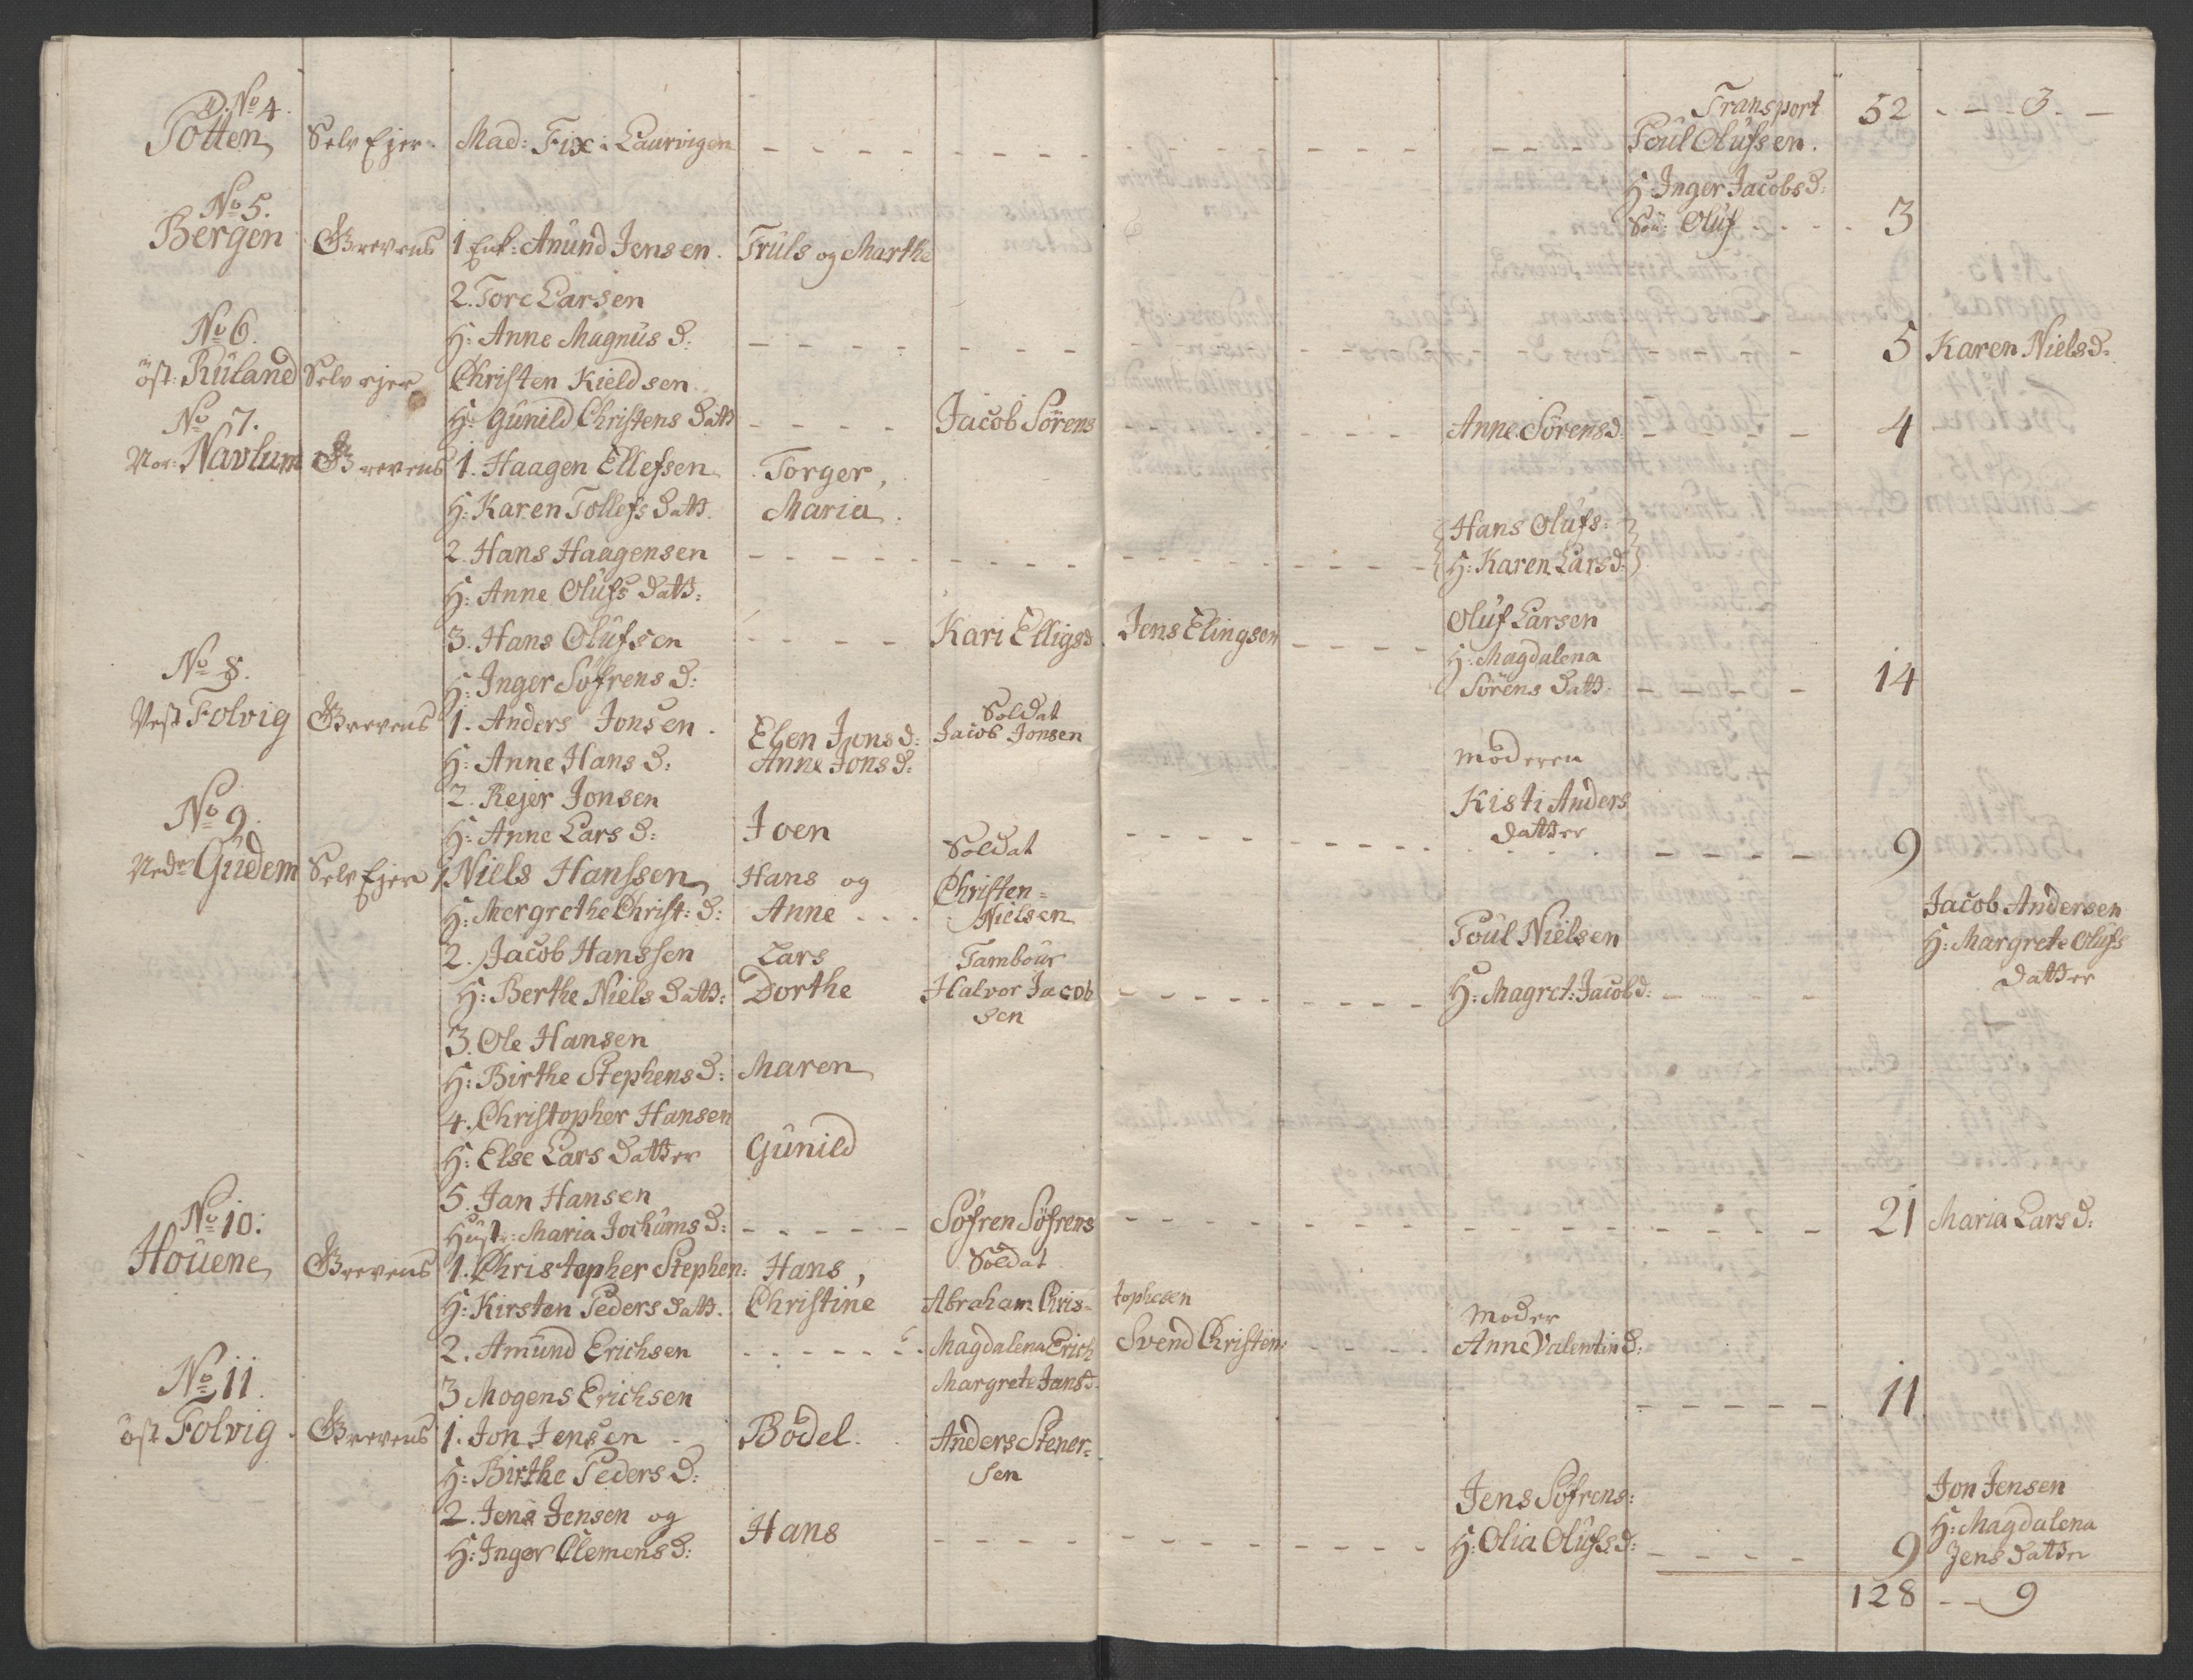 No 4.
Totten Selv Ejer. Mad: Fix: Laurvigen Transport 52 - - 3 -
Poul Olufsen.
H: Inger Jacobs d:
Sön: Oluf - - - 3
No 5.
Bergen Grevens 1. Enk: Amund Jensen. Truls og Marthe
2. Tore Larsen
H: Anne Magnus d: - - - 5 Karen Niels d:
No 6.
öst: Ruland Selv ejer Christen Kieldsen
H: Gunild Christens datt - - - Jacob Sörens - - - Anne Sörens d: - - - 4
No 7.
Nor: Navlum Grevens 1. Haagen Ellefsen Torger,
H: Karen Tollefs datt. Maria.
2. Hans Haagensen - - - Hans Olufs:
H: Anne Olufs datt: H: Karen Lars d:
3. Hans Olufsen - - - Kari Elligs d. Jens Elingsen - - - Oluf Larsen
H: Inger Söfrens d: H: Magdalena
Sörens datt. - - - 14
No 8.
Vest Folvig Grevens 1. Anders Jonsen. Elen Jons d: Soldat
Jacob Jonsen
H: Anne Hans d: Anne Jons d: Moderen
2. Rejer Jonsen Kisti Anders
H: Anne Lars d: Joen - - - datter - - - 9
No 9.
Nedr Gudem Selv Ejer 1. Niels Hanssen Hans og Soldat
Christen=
H: Mergrethe Christ: d: Anne - - Nielsen Poul Nielsen Jacob Andersen
2. Jacob Hanssen Lars Tambour H: Margrete Olufs
datter
H: Berthe Niels datt: Dorthe Halvor Jacob - - - H: Magret: Jacob d: - - -
sen
3. Ole Hansen
H: Birthe Stephens d: Maren
4. Christopher Hansen
H: Else Lars datter Gunild
5. Jan Hansen
Hustr: Maria Jochums d: - - - Söfren Söfrens - - - 21 Maria Lars d:
No 10.
Houene Grevens 1. Christopher Stephen: Hans, Soldat
H: Kirsten Peders datt. Christine Abraham Chris= tophesen Moder
2. Amund Erichsen - - - Magdalena Erich Svend Christen: - - - Anne Valentin d:
3 Mogens Erichsen Margrete Jans d. - - - 11
No 11.
öst Folvig. Grevens 1. Jon Jensen - Bodel. Anders Stener=
sen
H: Birthe Peders d:
2. Jens Jensen og Hans Jens Söfrens: Jon Jensen
H: Inger Clemens d: - - - H: Olia Olufs d: - - - 9 H: Magdalena
Jens datter
128 - - 9